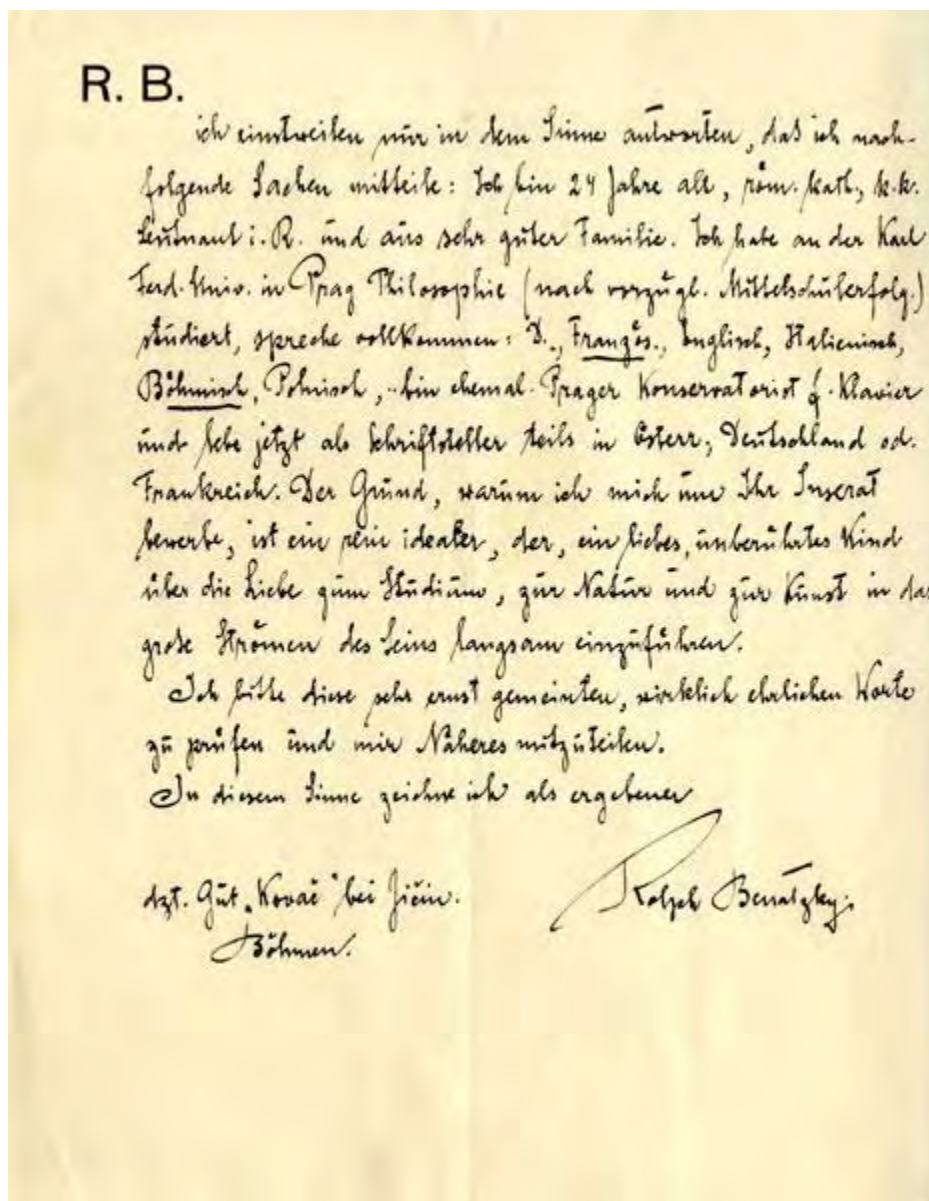 R. B.
ich einstweilen nur in dem Sinne antworten, daß ich nach-
folgende Sachen mitteile: Ich bin 24 Jahre alt, röm. kath., k. k.
Leutnant i. R. und aus sehr guter Familie. Ich habe an der Karl
Ferd. Univ. in Prag Philosophie (nach vorzügl. Mittelschulerfolg.)
studiert, spreche vollkommen: D., Französ., Englisch, Italienisch,
Böhmisch, Polnisch, bin ehemal. Prager Konservatorist f. Klavier
und lebe jetzt als Schriftsteller teils in Österr., Deutschland od.
Frankreich. Der Grund, warum ich mich um Ihr Inserat
bewerbe, ist ein rein idealer, der, ein liebes, unberührtes Kind
über die Liebe zum Studium, zur Natur und zur Kunst in das
große Strömen des Seins langsam einzuführen.
Ich bitte diese sehr ernst gemeinten, wirklich ehrlichen Worte
zu prüfen und mir Näheres mitzuteilen.
In diesem Sinne zeichne ich als ergebener
dzt. Gut „Kovač“ bei Jičin.
Böhmen.
Ralph Benatzky